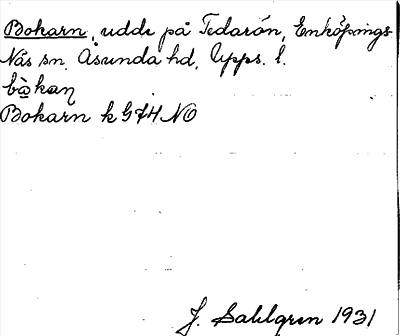 Bokarn, udde på Tedarön, Enköpings-
Näs sn. Åsunda hd, Upps. l.
bȯ̱kaɳ
Bokarn k G74 NO
J. Sahlgren 1931